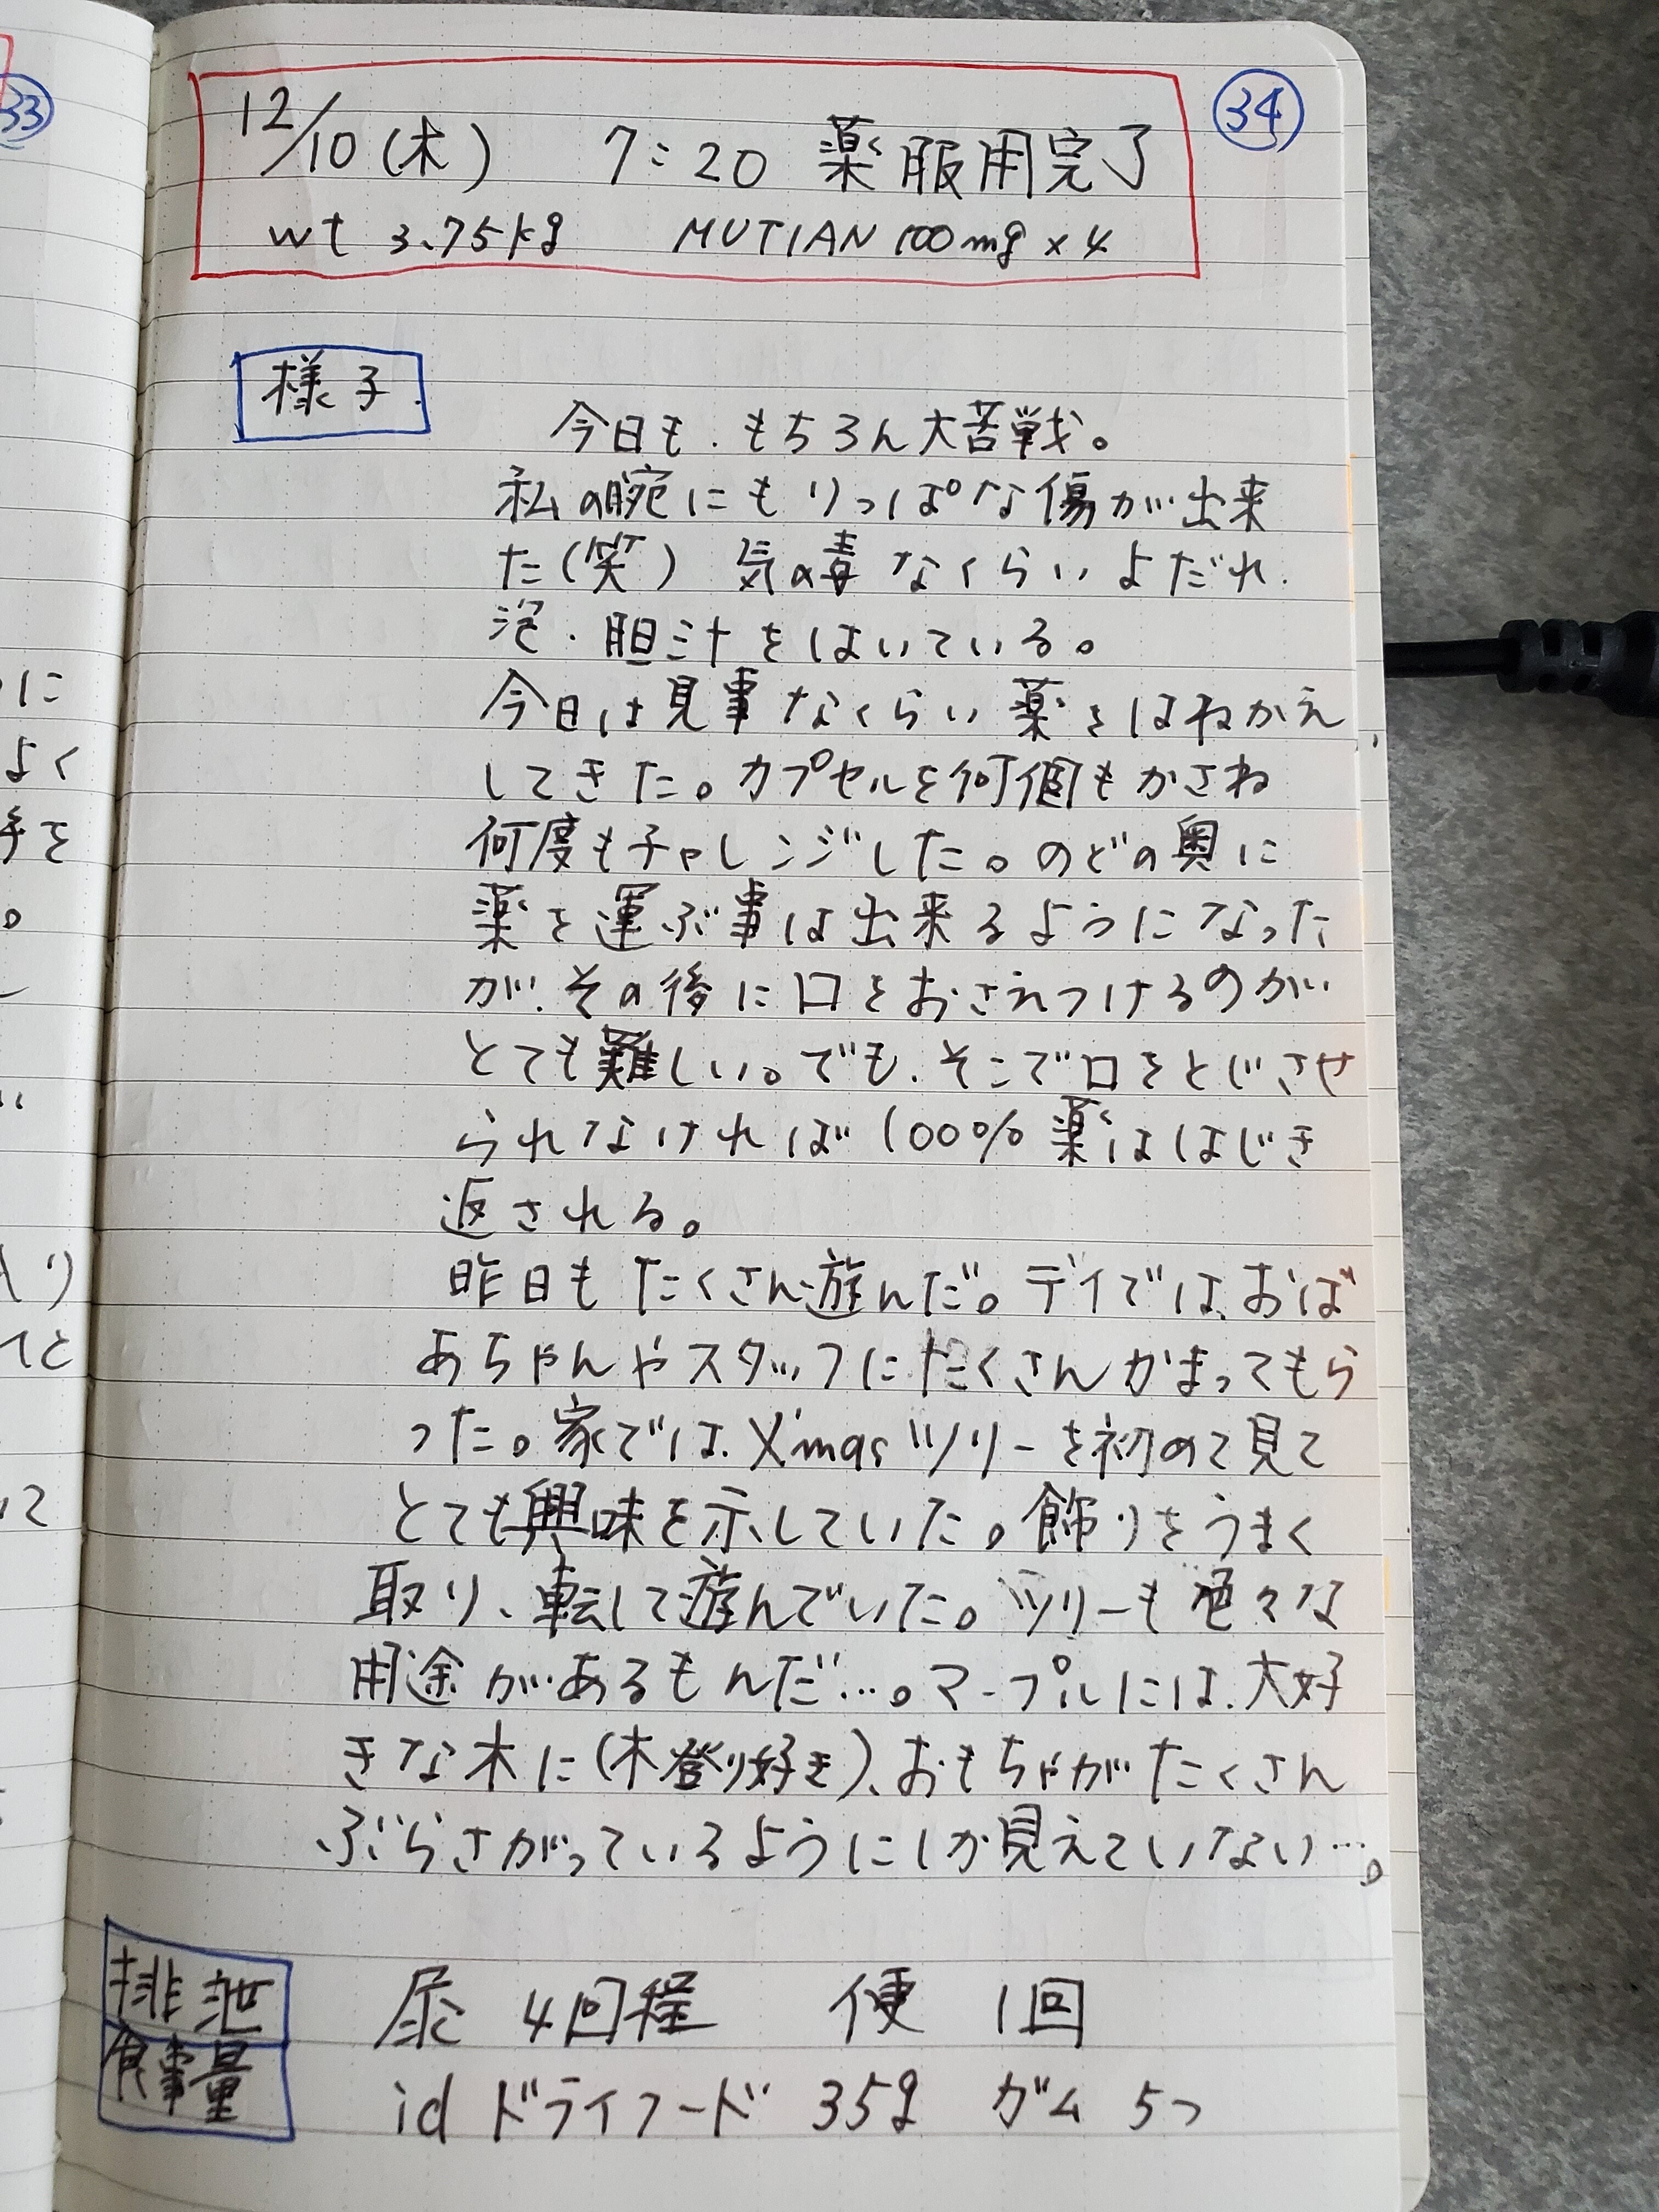 33
34
12/10(木) 7:20 薬服用完了
wt 3.75kg MUTIAN 100mg×4
様子
今日も、もちろん大苦戦。
私の腕にもりっぱな傷が出来
た(笑) 気の毒なくらいよだれ、
泡・胆汁をはいている。
今日は見事なくらい薬をはねかえ
してきた。カプセルを何個もかさね、
何度もチャレンジした。のどの奥に
薬を運ぶ事は出来るようになった
が、その後に口をおさえつけるのが
とても難しい。でも、そこで口をとじさせ
られなければ100%薬ははじき
返される。
昨日もたくさん遊んだ。デイでは、おば
あちゃんやスタッフにたくさんかまってもら
った。家では、X'masツリーを初めて見て
とても興味を示していた。飾りをうまく
取り、転して遊んでいた。ツリーも色々な
用途があるもんだ…。マープルには、大好
きな木に(木登り好き)、おもちゃがたくさん
ぶらさがっているようにしか見えていない…。
排泄 尿 4回程 便 1回
食事量 id ドライフード 35g ガム 5つ